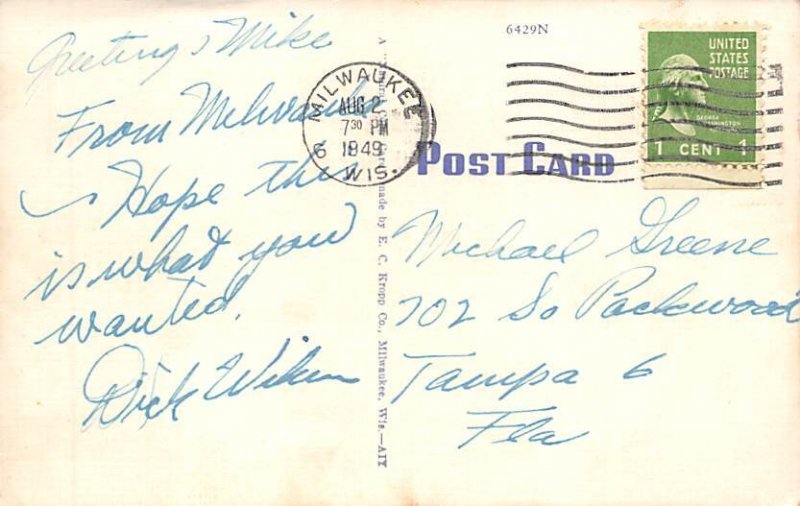 Greetings Mike
From Milwaukee
Hope this
is what you
wanted.
Dick
6429N
MILWAUKEE
AUG 2
7 30 PM
1949
WIS.
6
UNITED
STATES
POSTAGE
GEORGE
WASHINGTON
1 CENT 1
POST CARD
made by E. C. Kropp Co., Milwaukee, Wis.—AIY
Michael Greene
702 So Packwood
Tampa 6
Fla